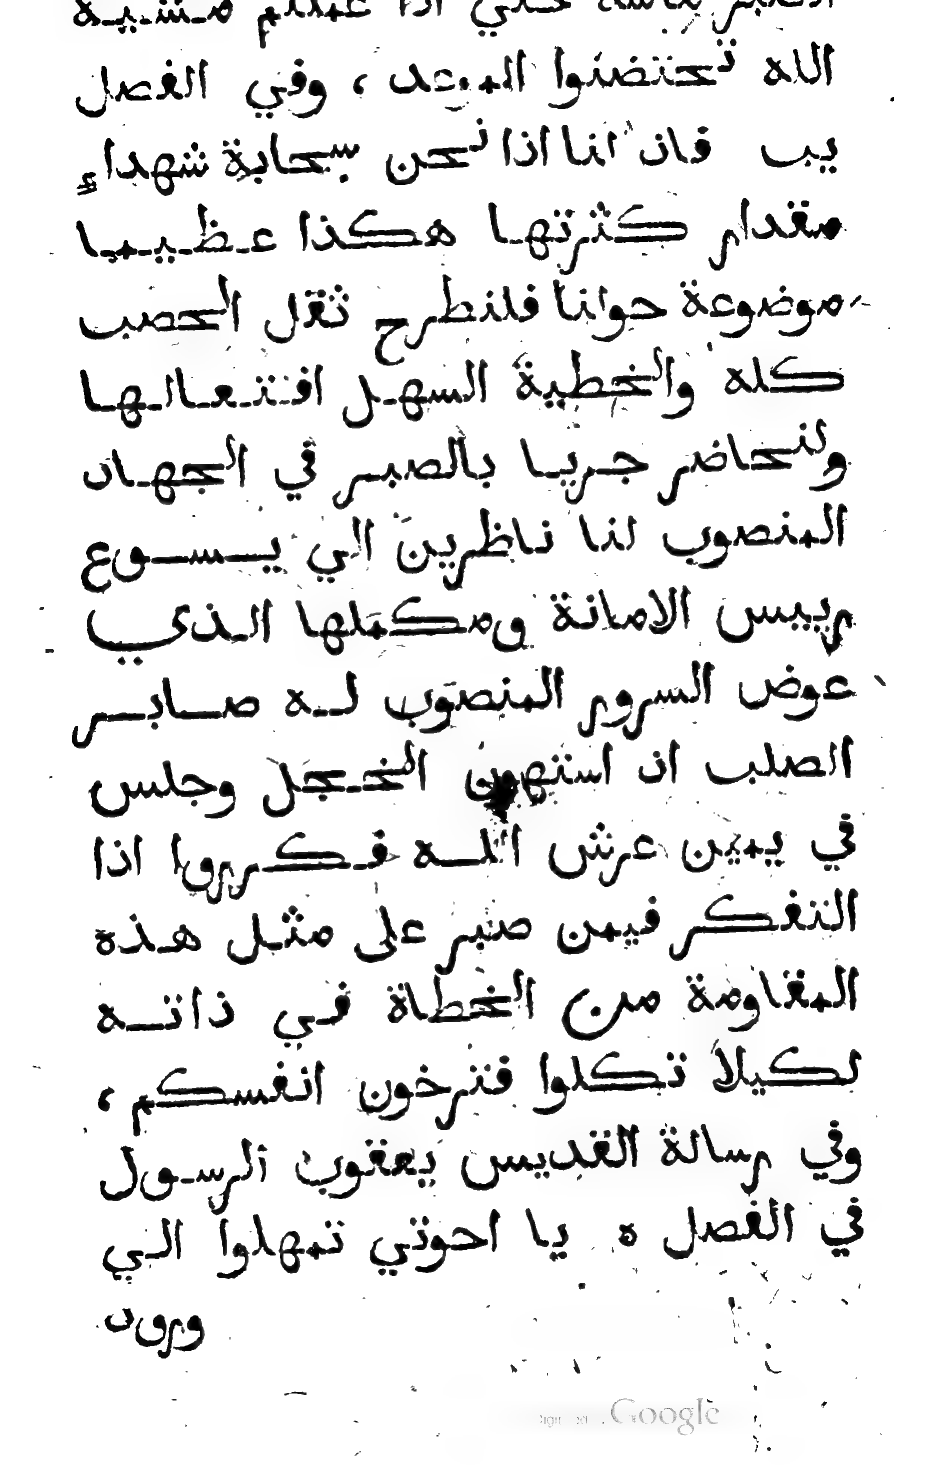 الله تحتضنوا الموعد ، وفي الفصل
يب فاذ انا اذا نحن سحابة شهداء
مقدار كثرتها هكذا عظيما
موضوعة حولنا فلنطرح ثقل الحصب
كله والخطية السهل افتعالها
ولنحاضر جريا بالصبر في الجهاد
المنصوب لنا ناظرين الي يسوع
رييس الامانة ومكملها الذي
عوض السرور المنصوب له صابر
الصلب اذ استهون الخجل وجلس
في يمين عرش الله فكرروا اذا
التفكر فيمن صبر على مثل هذه
المقاومة من الخطاة في ذاته
لكيلا تكلوا فترخون انفسكم ،
وفي رسالة القديس يعقوب الرسول
في الفصل ه يا احوتي تمهلوا الي
ورود
Google